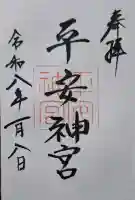 奉拝
平安神宮
令和八年一月八日